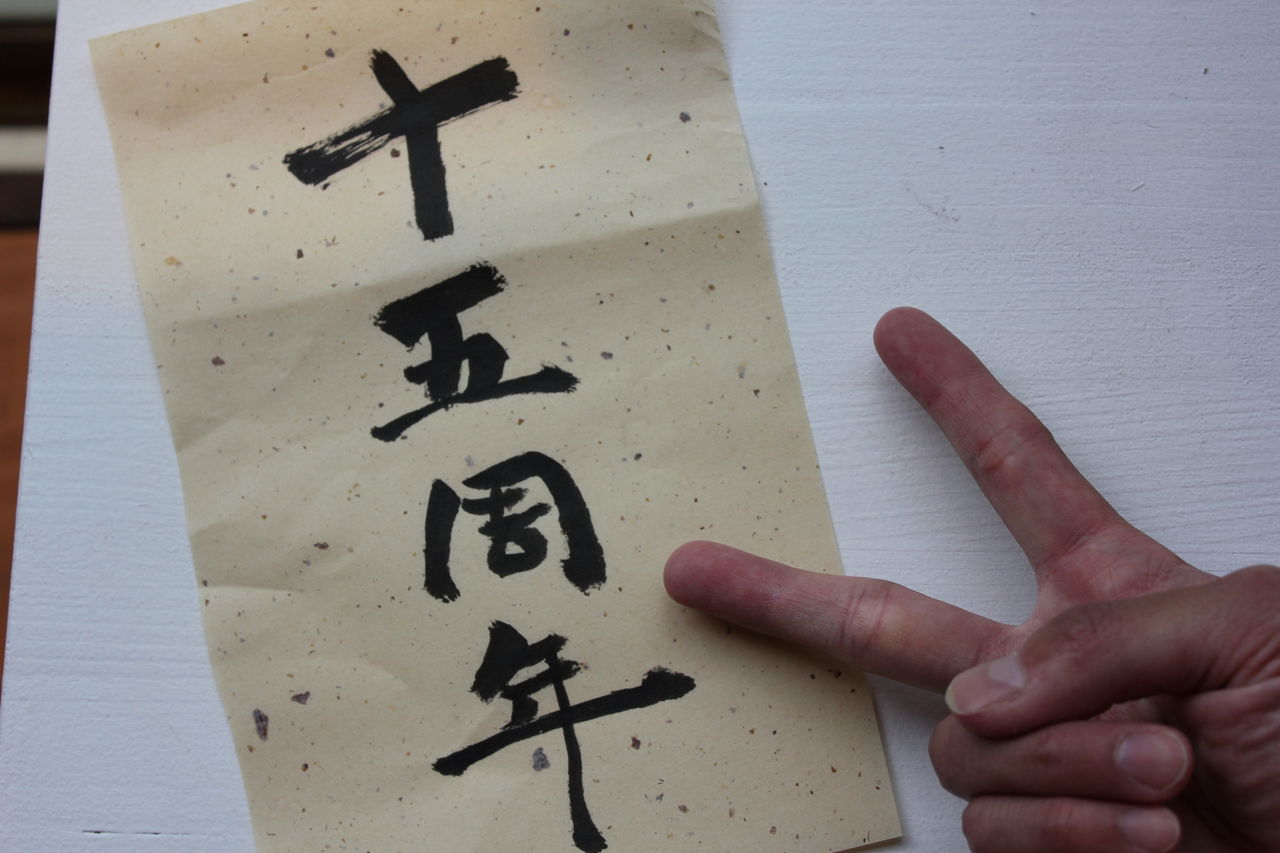 十五周年